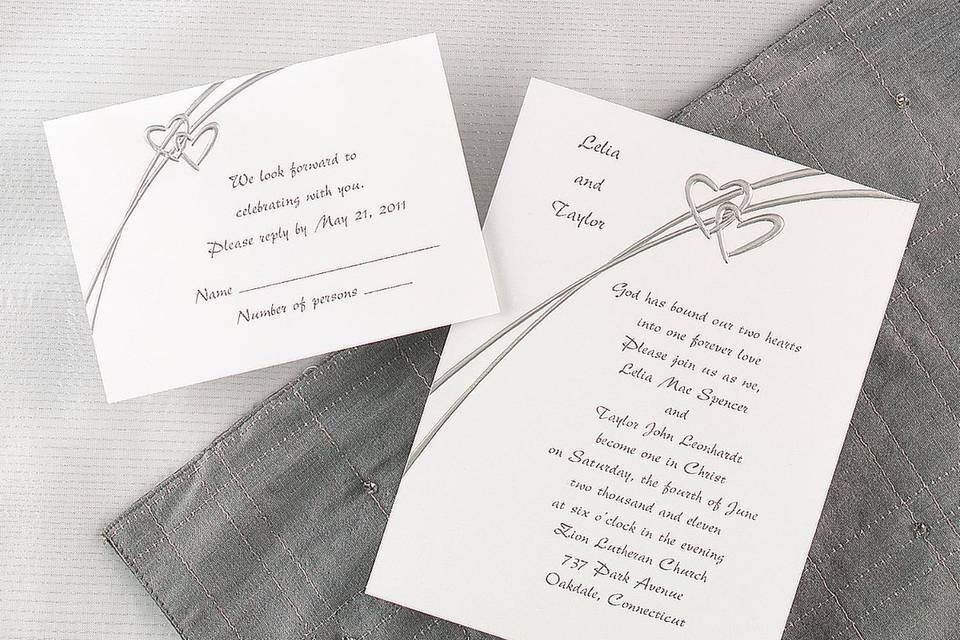 We look forward to
celebrating with you.
Please reply by May 21, 2011
Name
Number of persons
Lelia
and
Taylor
God has bound our two hearts
into one forever love
Please join us as we,
Lelia Mae Spencer
and
Taylor John Leonhardt
become one in Christ
on Saturday, the fourth of June
two thousand and eleven
at six o'clock in the evening
Zion Lutheran Church
737 Park Avenue
Oakdale, Connecticut